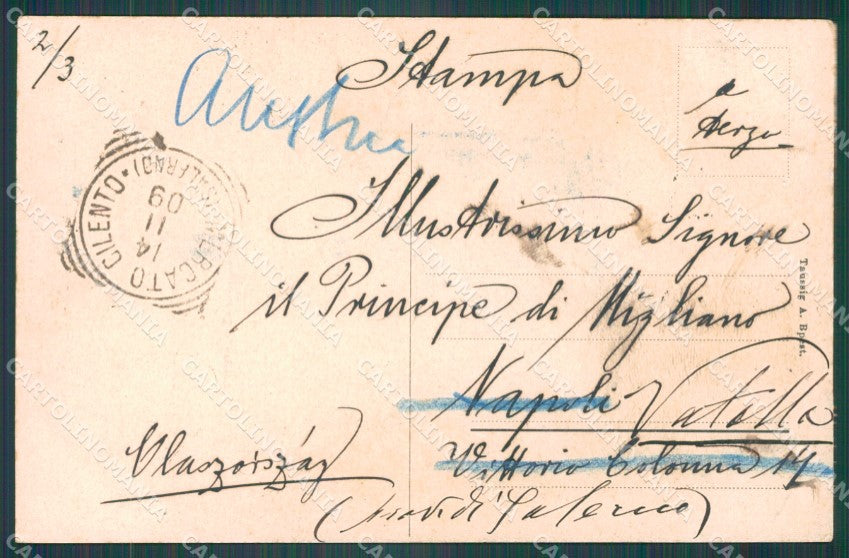 2/3
Stampa
a
tergo
MERCATO CILENTO * (SALERNO)
14
11
09
Illustrissimo Signore
il Principe di Migliano
Napoli Vatolla
Vittorio Colonna 14
Olaszország
di Salerno)
Taussig A. Bpest.
CARTOLINOMANIA